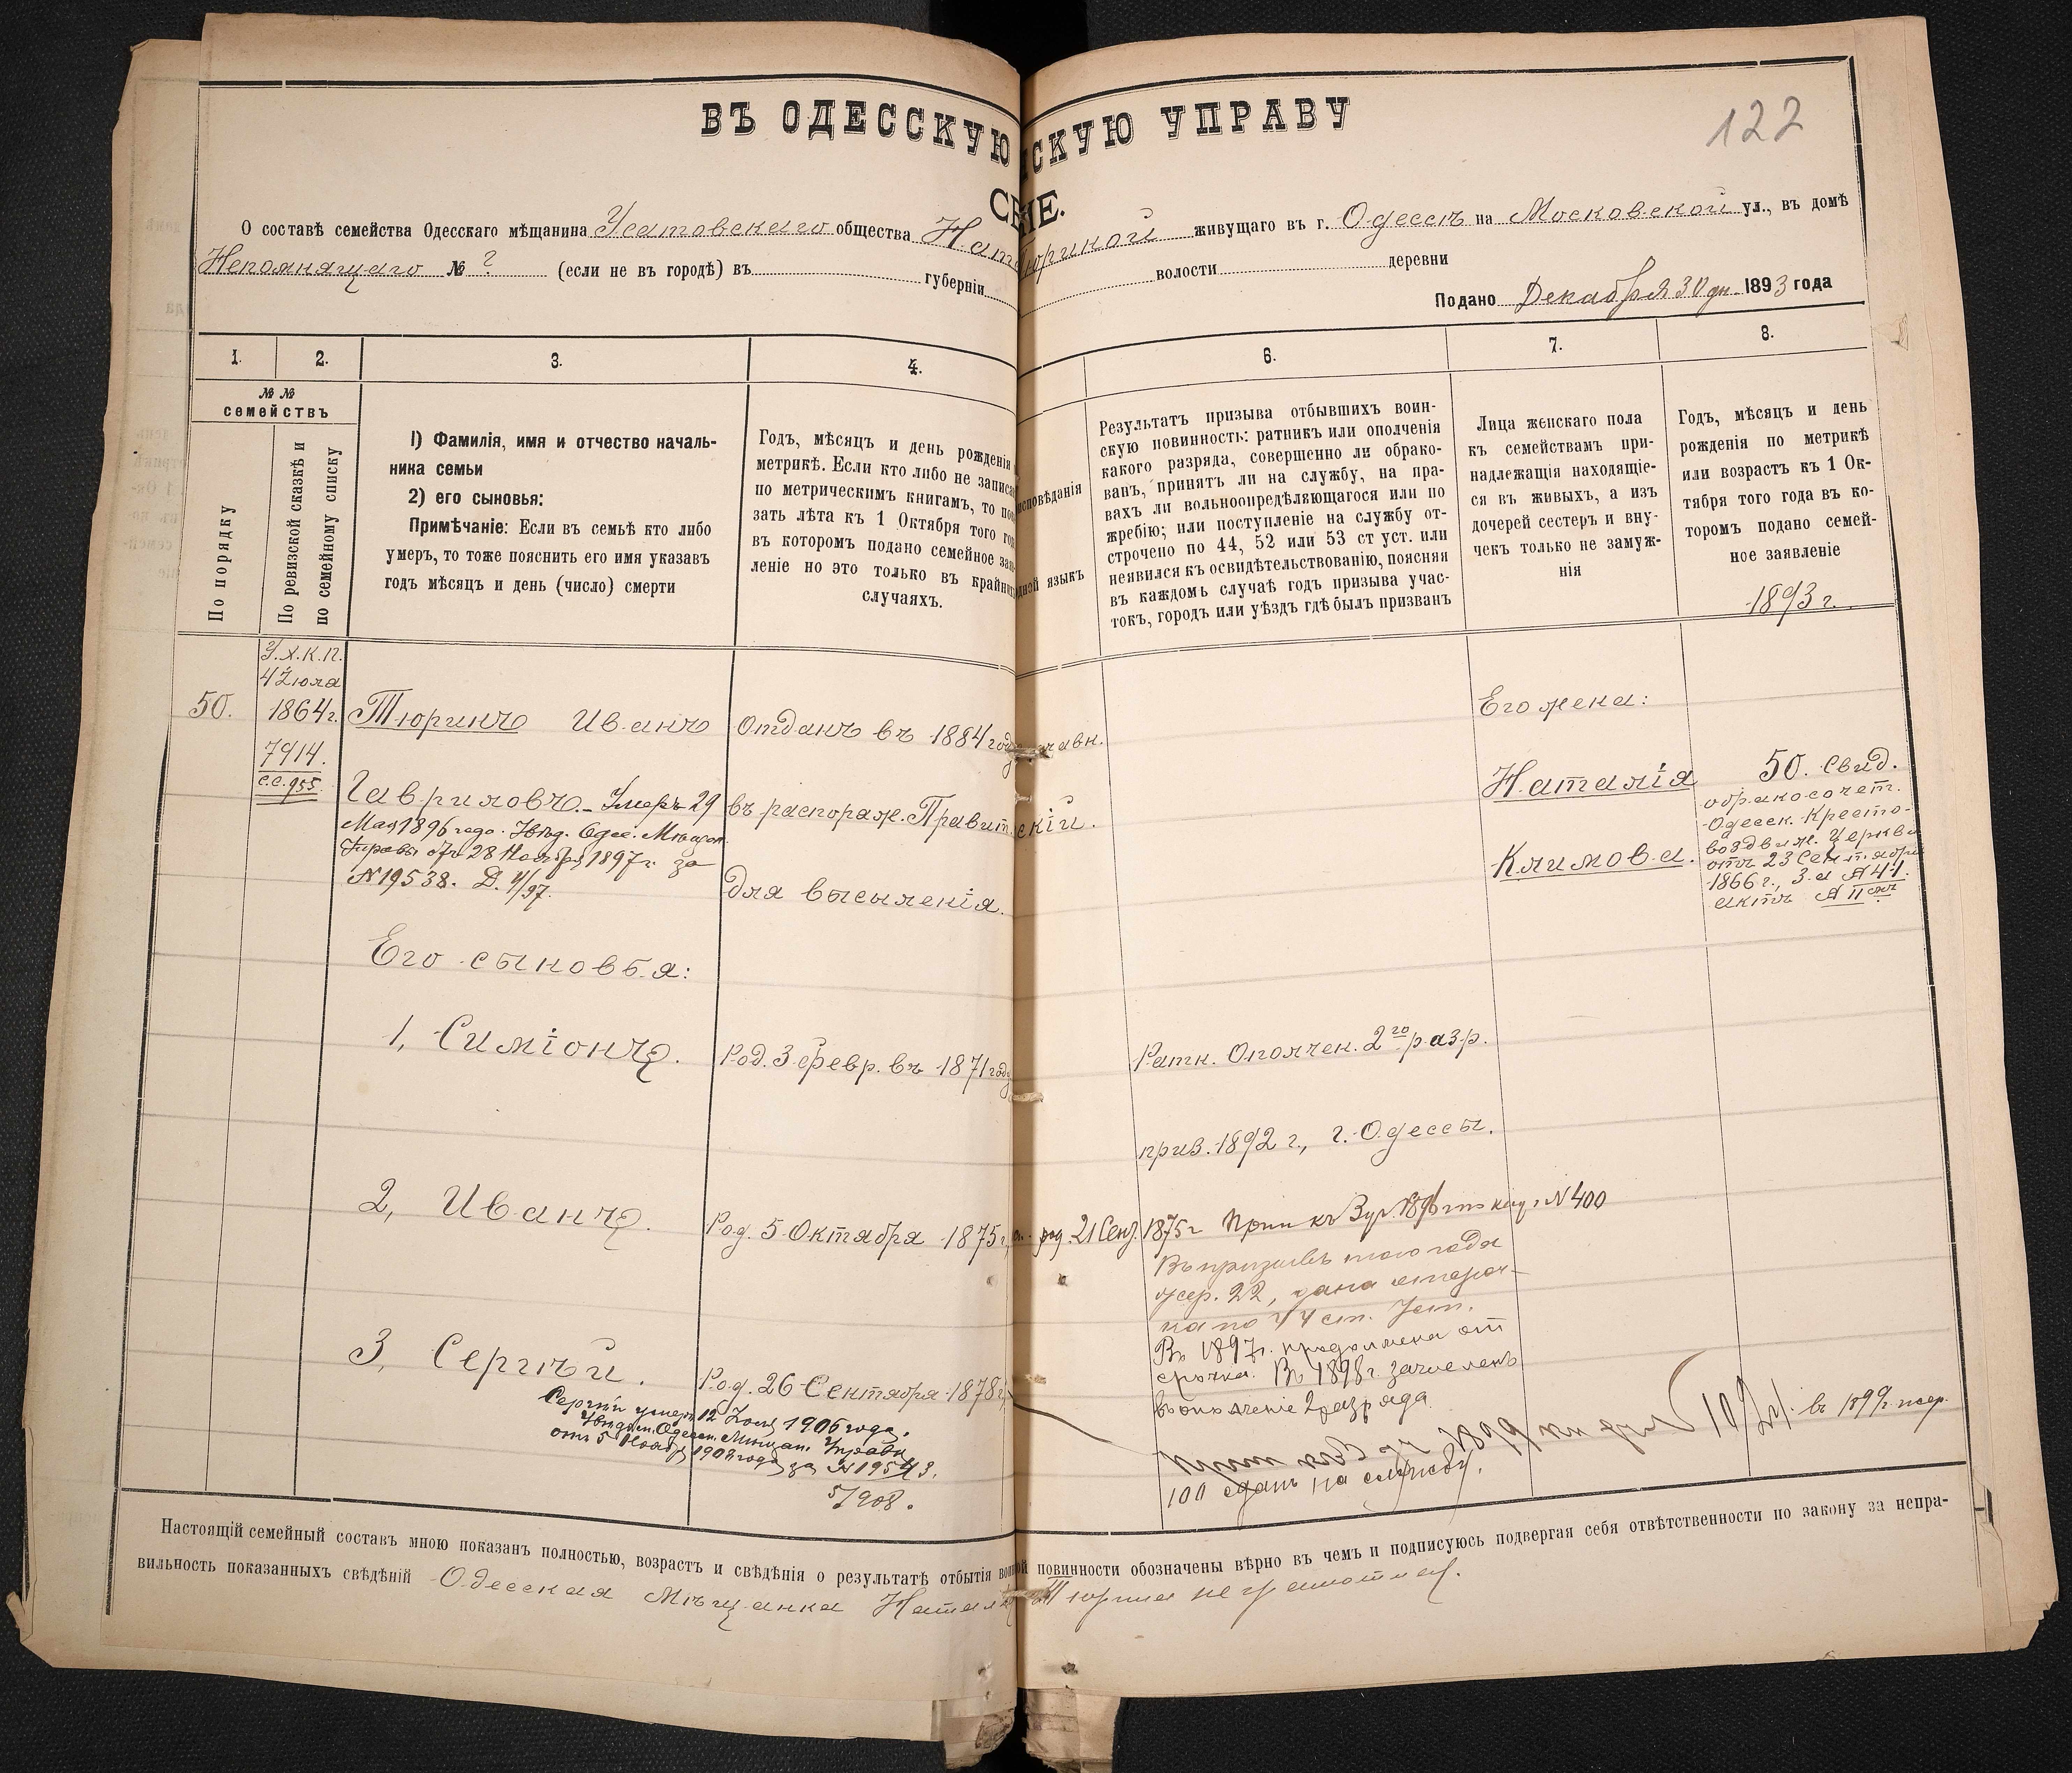 ВЪ ОДЕССКУЮ СКУЮ УПРАВУ
122
О составѣ семейства Одесскаго мѣщанина Усатовскаго общества Ната Тюриной живущаго въ г. Одессѣ на Московской ул., въ домѣ
Непомнящаго № ? (если не въ городѣ) въ губерніи волости деревни
Подано Декабря 30 дн. 1893 года
1. 2. 3. 4. 6. 7. 8.
№ № семействъ
По порядку
По ревизской сказкѣ и
по семейному списку
1) Фамилія, имя и отчество началь-
ника семьи
2) его сыновья:
Примѣчаніе: Если въ семьѣ кто либо
умеръ, то тоже пояснить его имя указавъ
годъ мѣсяцъ и день (число) смерти
Годъ, мѣсяцъ и день рожденія
метрикѣ. Если кто либо не записа
по метрическимъ книгамъ, то по
зать лѣта къ 1 Октября того го
въ которомъ подано семейное зая
леніе но это только въ крайни
случаяхъ.
исповѣданія
дной языкъ
Результатъ призыва отбывшихъ воин-
скую повинность: ратникъ или ополченія
какого разряда, совершенно ли обрако-
ванъ, принятъ ли на службу, на пра-
вахъ ли вольноопредѣляющагося или по
жребію; или поступленіе на службу от-
строчено по 44, 52 или 53 ст уст. или
неявился къ освидѣтельствованію, поясняя
въ каждомъ случаѣ годъ призыва учас-
токъ, городъ или уѣздъ гдѣ былъ призванъ
Лица женскаго пола
къ семействамъ при-
надлежащія находящіе-
ся въ живыхъ, а изъ
дочерей сестеръ и вну-
чекъ только не замуж-
нія
Годъ, мѣсяцъ и день
рожденія по метрикѣ
или возрастъ къ 1 Ок-
тября того года въ ко-
торомъ подано семей-
ное заявленіе
1893 г.
У.х.К.П.
4 Іюля
50. 1864 г. Тюринъ Иванъ Отданъ въ 1884 году
7914.
С.С. 955.
Гавриловъ. - Умеръ 29 въ распоряж. Правит.
Мая 1896 года. Увѣд. Одес. Мѣщан.
Управы отъ 28 Ноября 1897 г. за
№ 19538. Д. 4/97.
для высыленія.
Его жена:
Наталія
Климова.
50. Свид.
о бракосочет.
Одесск. Кресто-
воздвиж. Церкви
отъ 23 Сентября
1866 г., за № 41.
актъ № 11
Его сыновья:
1, Симіонъ. Род. 3 февр. въ 1871 году Ратн. Ополчен. 2го разр.
приз. 1892 г., г. Одессы.
2, Иванъ. Род. 5 Октября 1875 г. род. 21 Сент. 1875 г № 400
Въ призывъ того года
жер. 22, дана отсроч-
ка по 44 ст. Уст.
В 1897 г. продолжена от
срочка. В 1898 г. зачисленъ
въ ополченіе 2 разряда
3, Сергѣй. Род. 26 Сентября 1878 г,
Сергѣй умеръ 12 Іюля 1906 года.
Увѣдом. Одесск. Мѣщан. Управы
отъ 5 Ноября 1908 года за № 19543.
5/908.
въ 1899 г. жер.
100 сданъ на службу.
Настоящій семейный составъ мною показанъ полностью, возрастъ и свѣдѣнія о результатѣ отбытія воинской повинности обозначены вѣрно въ чемъ и подписуюсь подвергая себя отвѣтственности по закону за непра-
вильность показанныхъ свѣдѣній Одесская Мѣщанка Наталія Тюрина неграмотная.